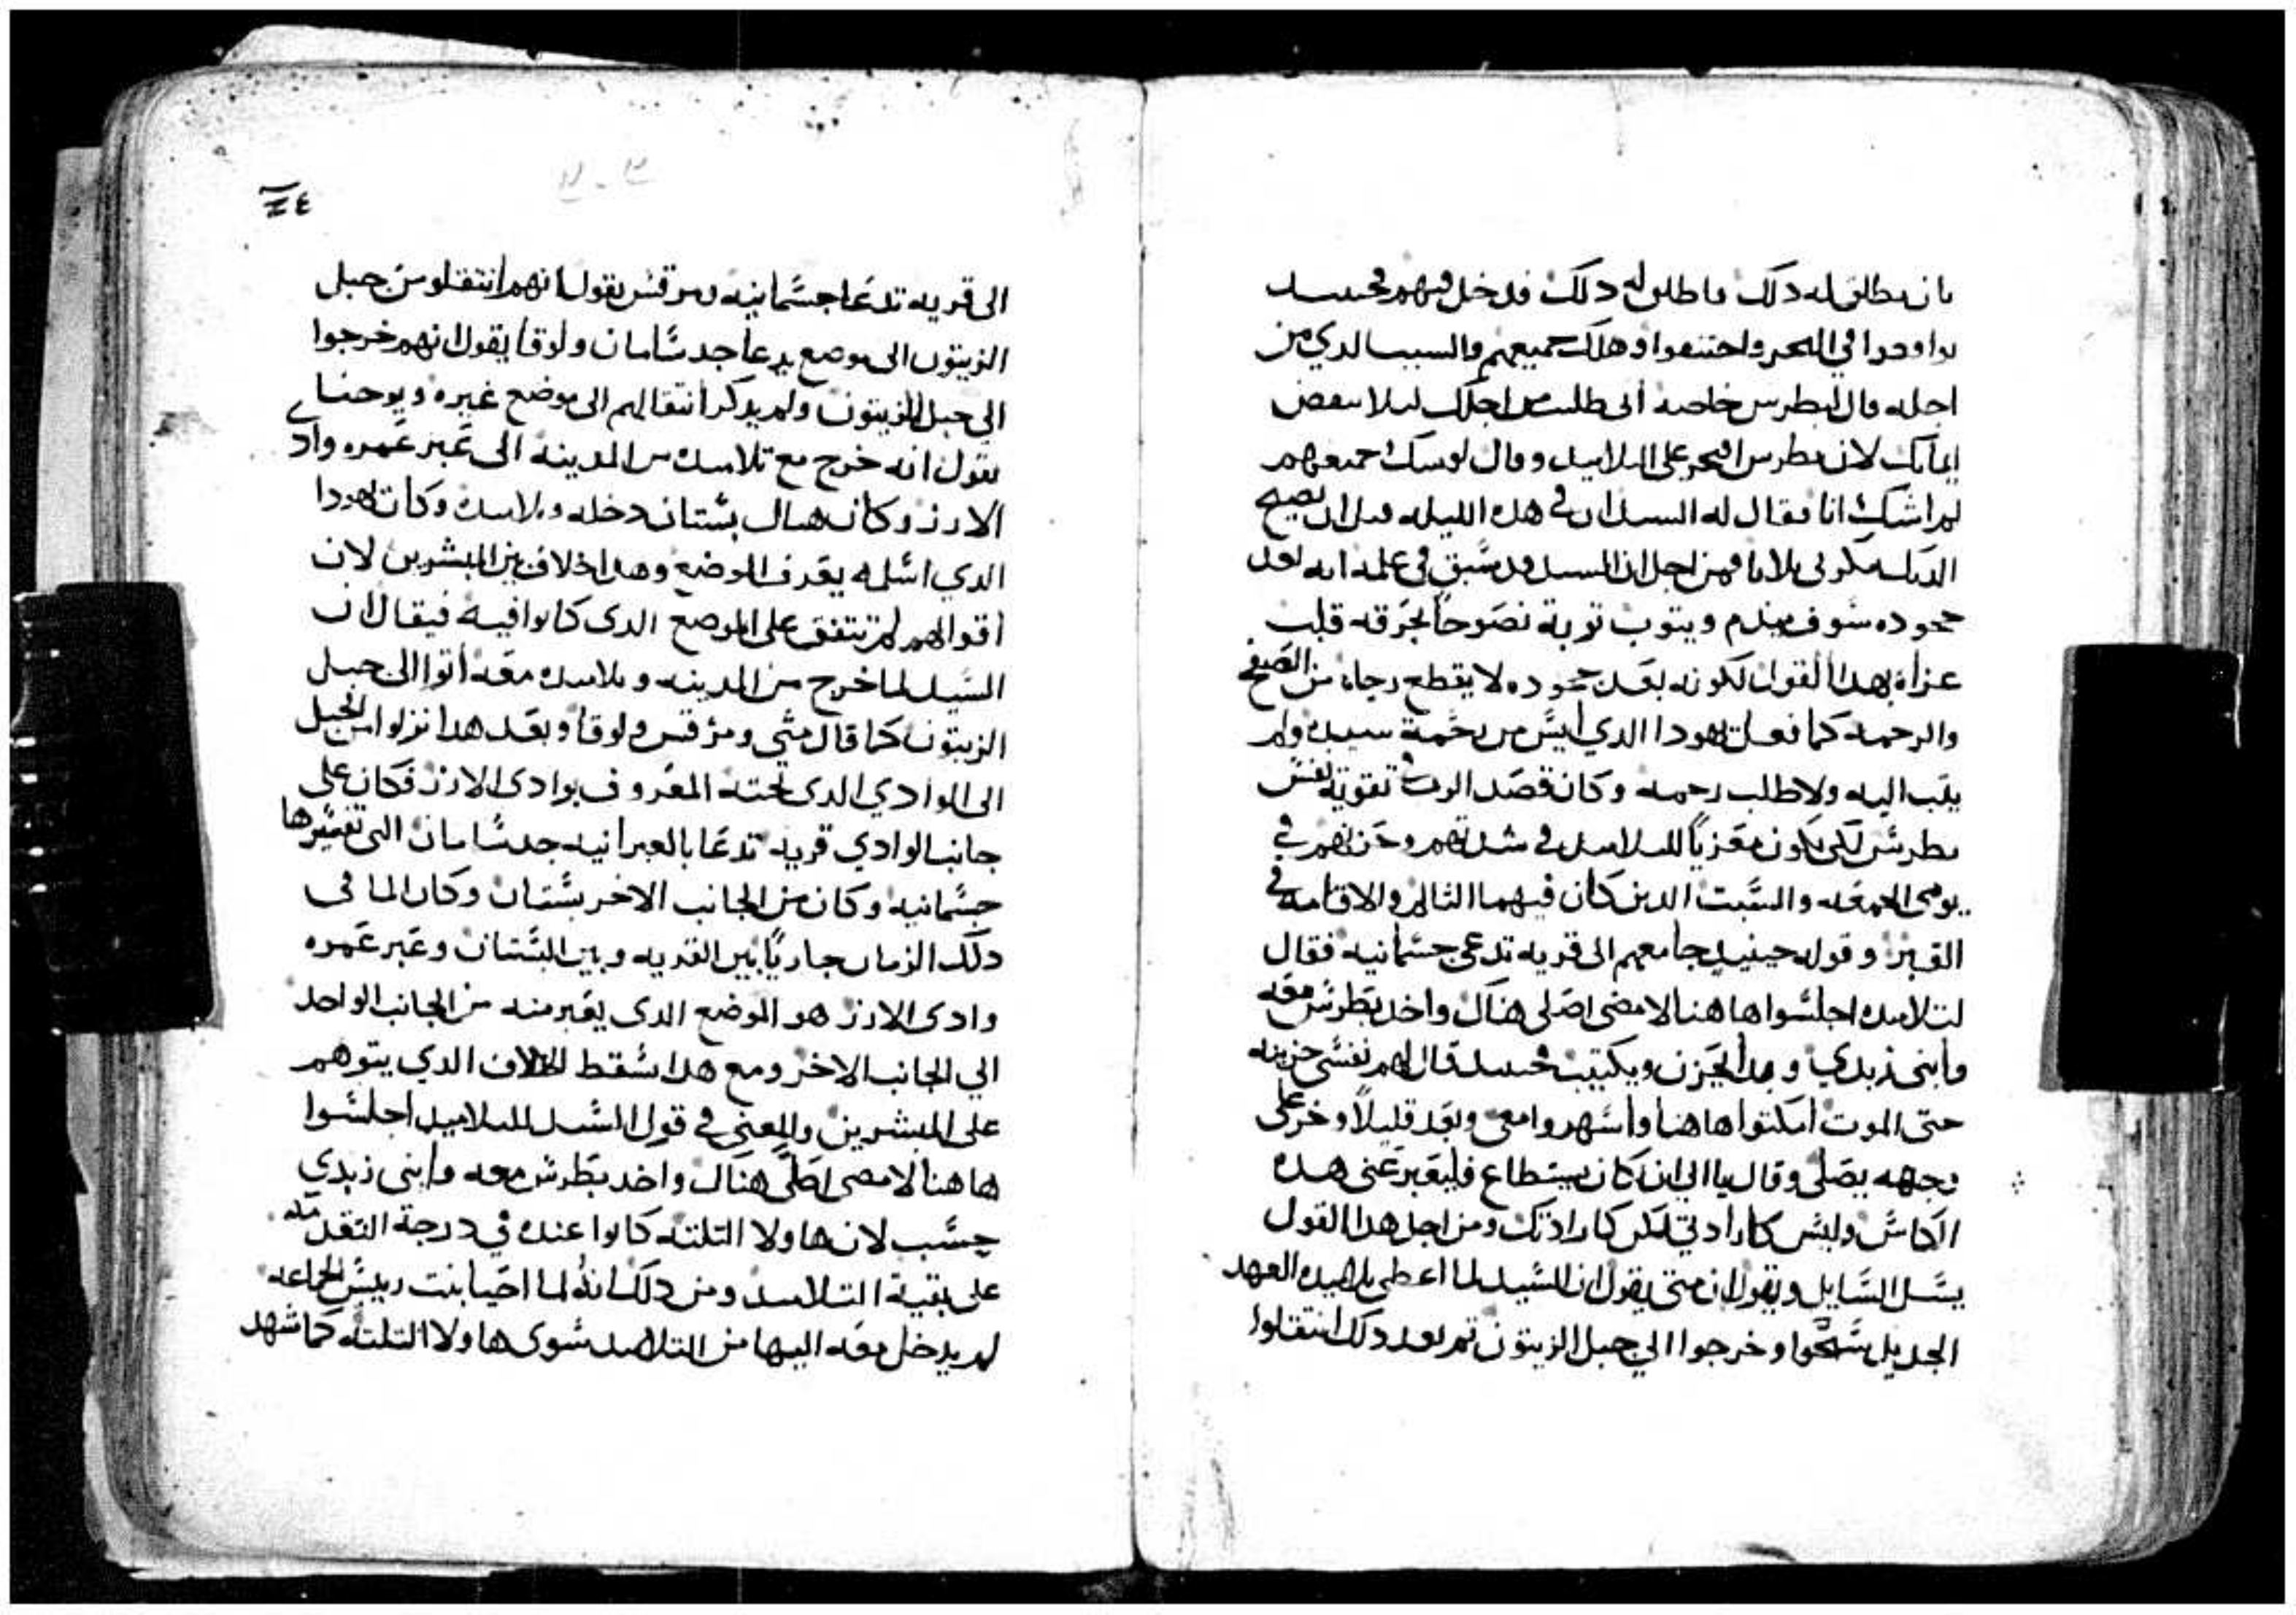 بان يطلق له دلك فاطلق له دلك فدخل فيهم فحينيد
تواقعوا في البحر واختنقوا وهلك جميعهم والسبب الدي من
اجله قال لبطرس خاصة انى طلبت من اجلك ليلا ينقص
ايمانك لان بطرس افتخر على التلاميد وقال لو شك جميعهم
لم اشك انا فقال له السيد ان في هده الليله قبل ان يصيح
الديك تنكرني تلاتا فمن اجل ان السيد قد سبق في علمه انه بعد
جحوده سوف يندم ويتوب توبة نصوحا لحرقه قلب
عزاه بهدا القول لكونه بعد جحوده لا يقطع رجاه من الصفح
والرحمه كما فعل يهودا الدي ايس من رحمة سيده ولم
يتب اليه ولا طلب رحمه وكان قصد الرب في تقوية نفس
بطرس لكى يكون معزيا للتلاميد في شدتهم وحزنهم في
يومى الجمعه والسبت الدين كان فيهما التالم والاقامه في
القبر وقوله حينيد جا معهم الى قريه تدعى جسمانيه فقال
لتلاميده اجلسوا هاهنا لامضى اصلى هناك واخد بطرس معه
وابنى زبدي وبدا يحزن ويكتيب فحينيد قال لهم نفسى حزينه
حتى الموت امكتوا هاهنا واسهروا معى وبعد قليلا وخر على
وجهه يصلى وقال يا ابي ان كان يستطاع فليعبر عنى هده
الكاس وليس كارادتي لكن كارادتك ومن اجل هدا القول
يسل السايل ويقول ان متى يقول ان السيد لما اعطى تلاميده العهد
الجديد سبحوا وخرجوا الي جبل الزيتون تم بعد دلك انتقلوا
٢٤
الى قريه تدعا جسمانيه ومرقس يقول انهم انتقلو من جبل
الزيتون الى موضع يدعا جدسامان ولوقا يقول انهم خرجوا
الى جبل الزيتون ولم يدكر انتقالهم الى موضع غيره ويوحنا
يقول انه خرج مع تلاميده من المدينه الى عبر غمره واد
الارز وكان هناك بستان دخله وتلاميده وكان يهودا
الدي اسلمه يعرف الموضع وهدا خلاف بين المبشرين لان
اقوالهم لم تتفق على الموضع الدى كانوا فيه فيقال ان
السيد لما خرج من المدينه وتلاميده معه اتوا الى جبل
الزيتون كما قال متى ومرقس ولوقا وبعد هدا نزلوا من الجبل
الى الوادي الدى تحته المعروف بوادى الارز فكان على
جانب الوادي قريه تدعا بالعبرانيه جدسامان التى تفسيرها
جسمانيه وكان من الجانب الاخر بستان وكان الما في
دلك الزمان جاريا بين القريه وبين البستان وعبر غمره
وادى الارز هو الموضع الدى يعبر منه من الجانب الواحد
الي الجانب الاخر ومع هدا سقط الخلاف الدي يتوهم
على المبشرين والمعنى في قول السيد للتلاميد اجلسوا
هاهنا لامضى اصلى هناك واخد بطرس معه وابنى زبدي
حسب لان هاولا التلته كانوا عنده في درجة التقدمه
على بقية التلاميد ومن دلك انه لما احيا بنت رييس الجماعه
لم يدخل معه اليها من التلاميد سوى هاولا التلته كما شهد